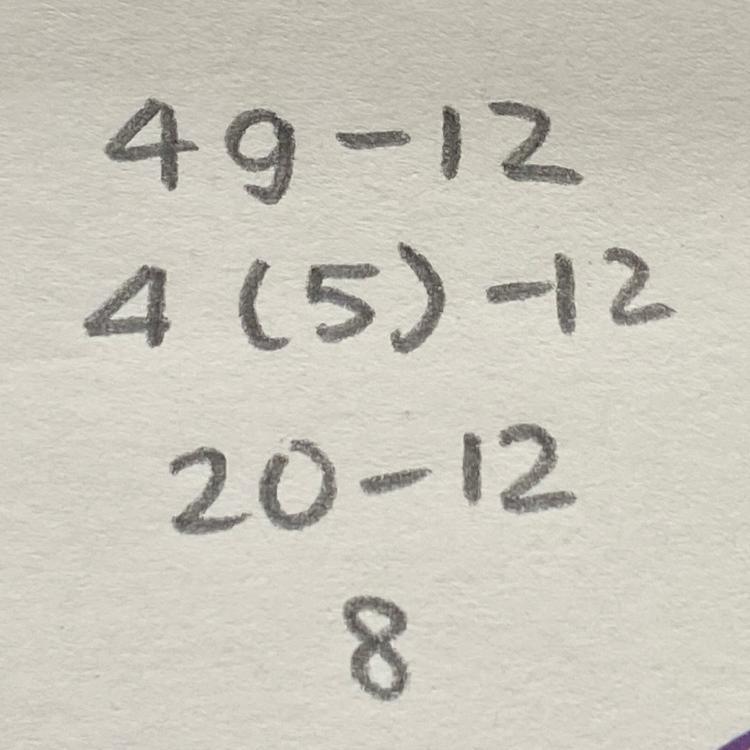 4g-12
4(5)-12
20-12
8